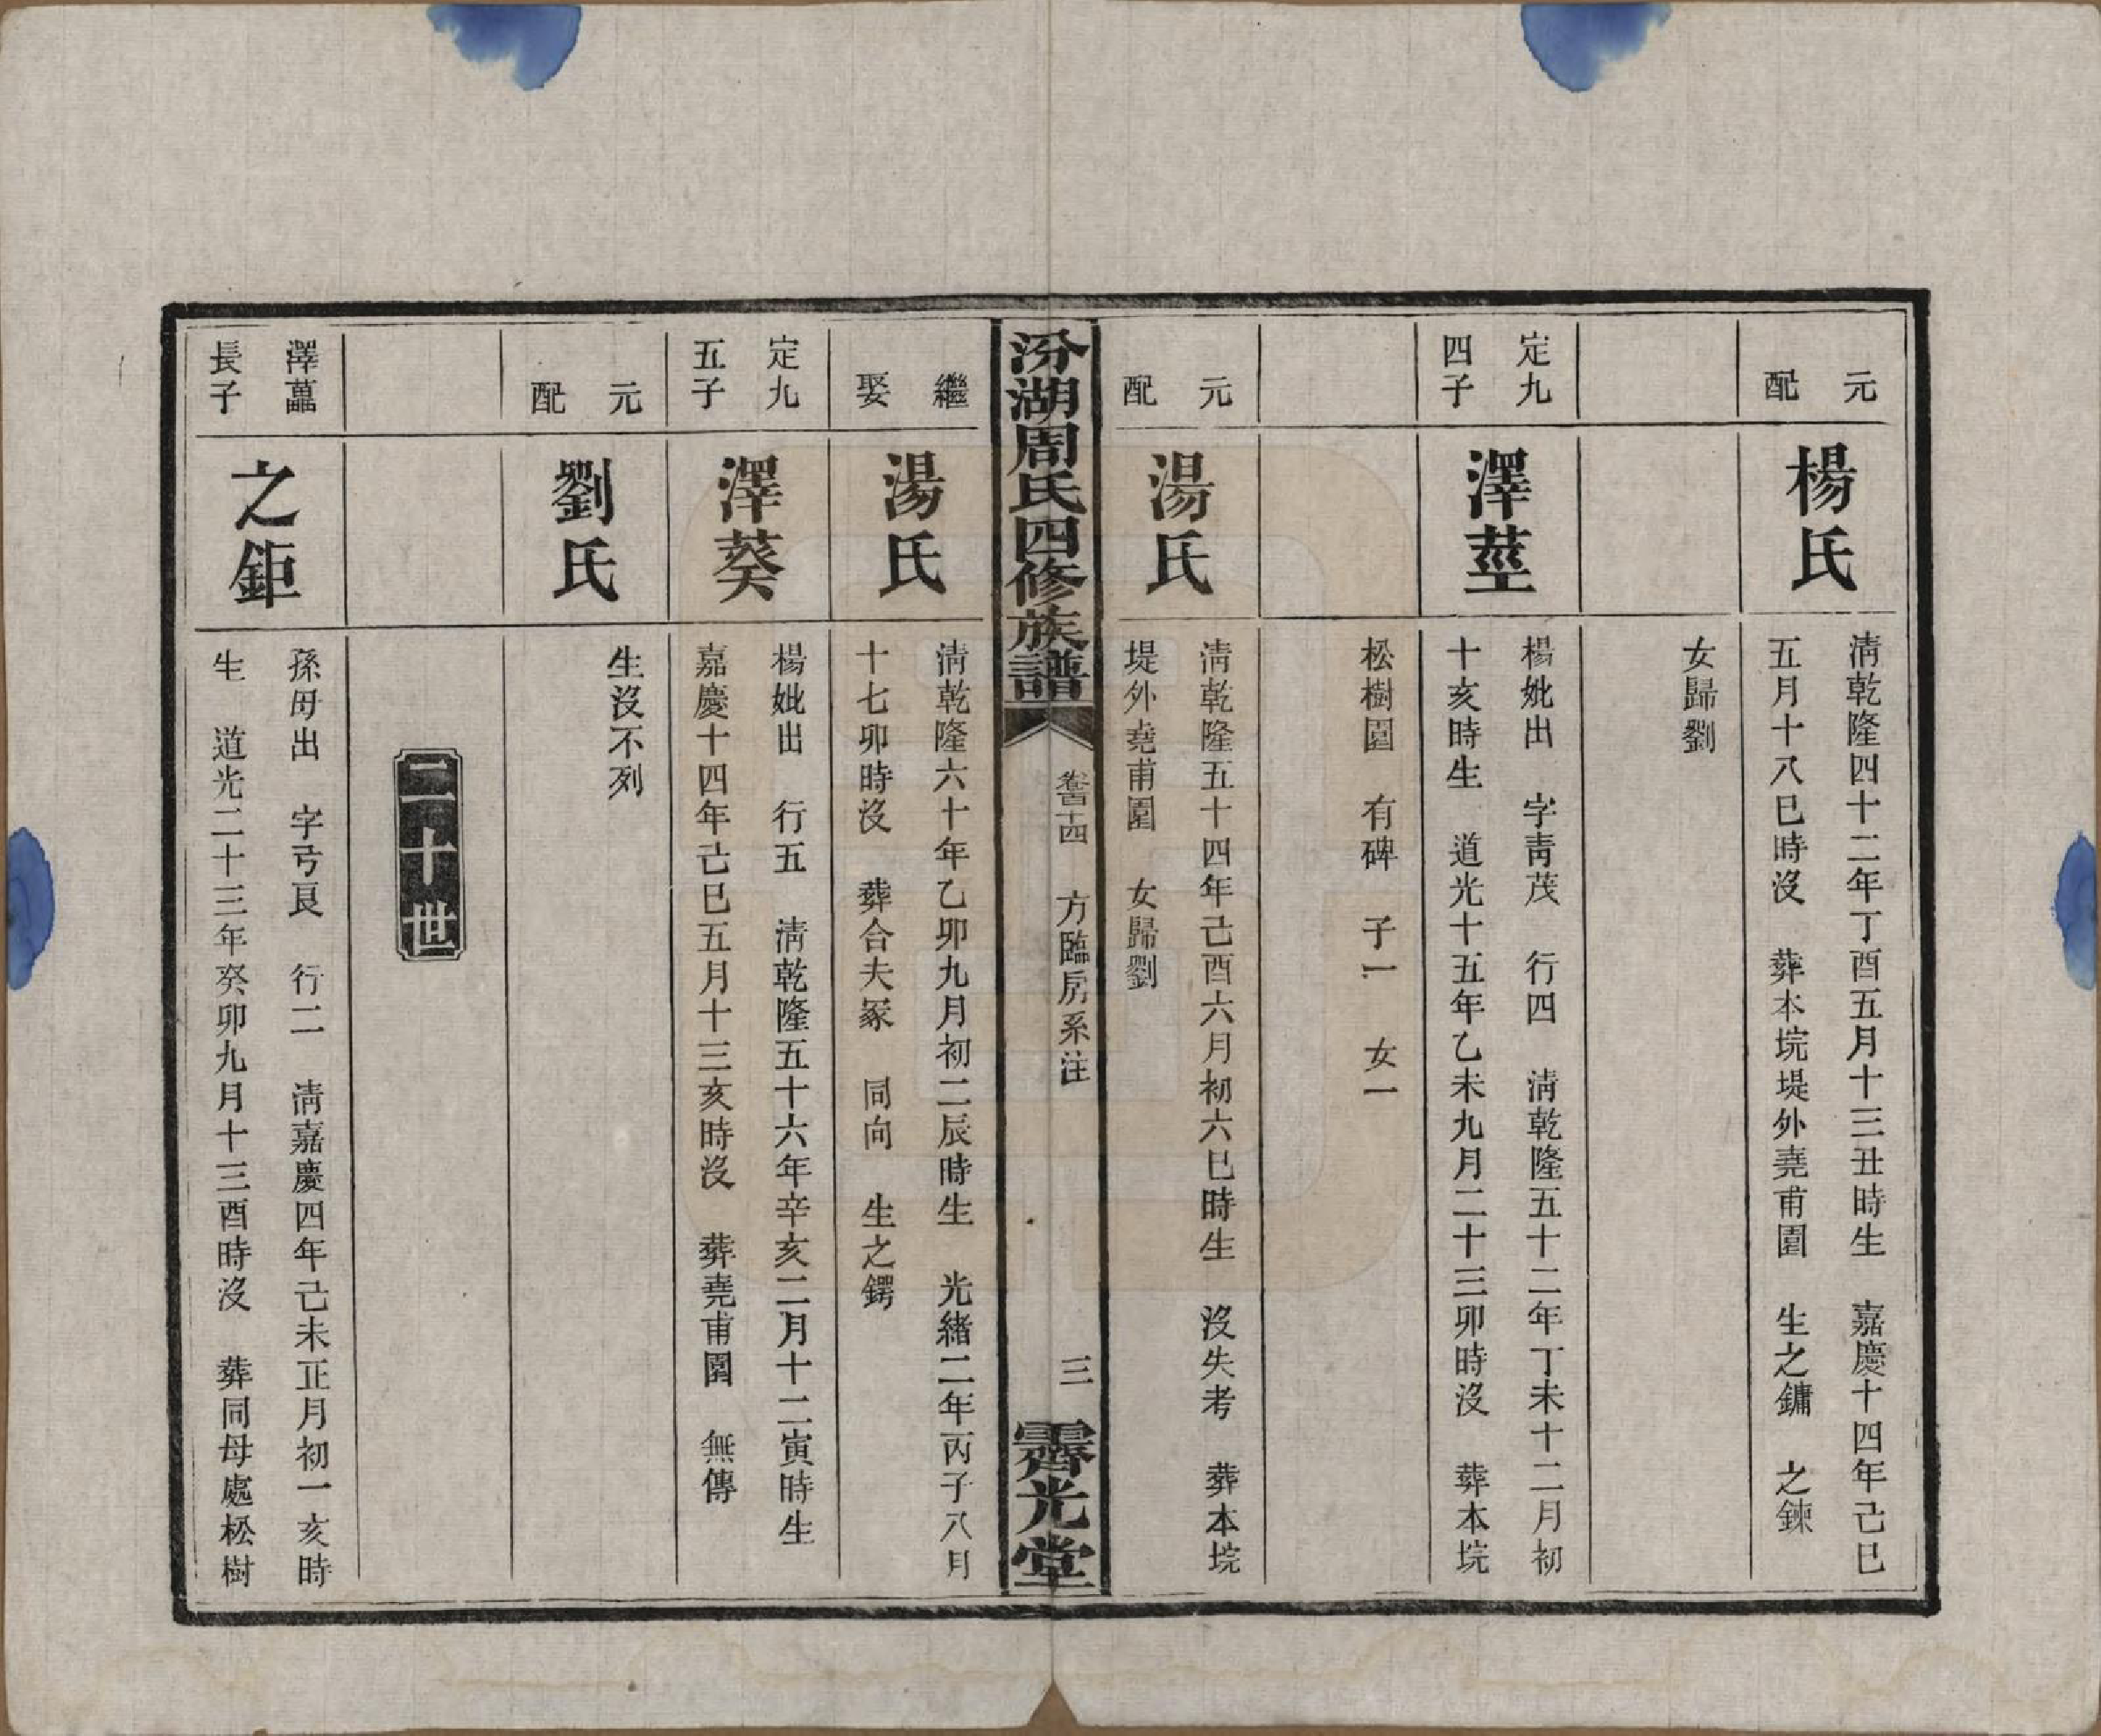 元
配
楊氏
清乾隆四十二年丁酉五月十三丑時生　嘉慶十四年己巳
五月十八巳時沒　葬本垸堤外堯甫園　生之鏞　之鍊
女歸劉
定九
四子
澤莖
楊妣出　字青茂　行四　清乾隆五十二年丁未十二月初
十亥時生　道光十五年乙未九月二十三卯時沒　葬本垸
松樹園　有碑　子一　女一
元
配
湯氏
清乾隆五十四年己酉六月初六巳時生　沒失考　葬本垸
堤外堯甫園　女歸劉
汾湖周氏四修族譜
卷十四　方臨房系注
三
霽光堂
繼
娶
湯氏
清乾隆六十年乙卯九月初二辰時生　光緒二年丙子八月
十七卯時沒　葬合夫冢　同向　生之鍔
定九
五子
澤葵
楊妣出　行五　清乾隆五十六年辛亥二月十二寅時生
嘉慶十四年己巳五月十三亥時沒　葬堯甫園　無傳
元
配
劉氏
生沒不列
二十世
澤藟
長子
之鉅
孫母出　字弓良　行二　清嘉慶四年己未正月初一亥時
生　道光二十三年癸卯九月十三酉時沒　葬同母處松樹